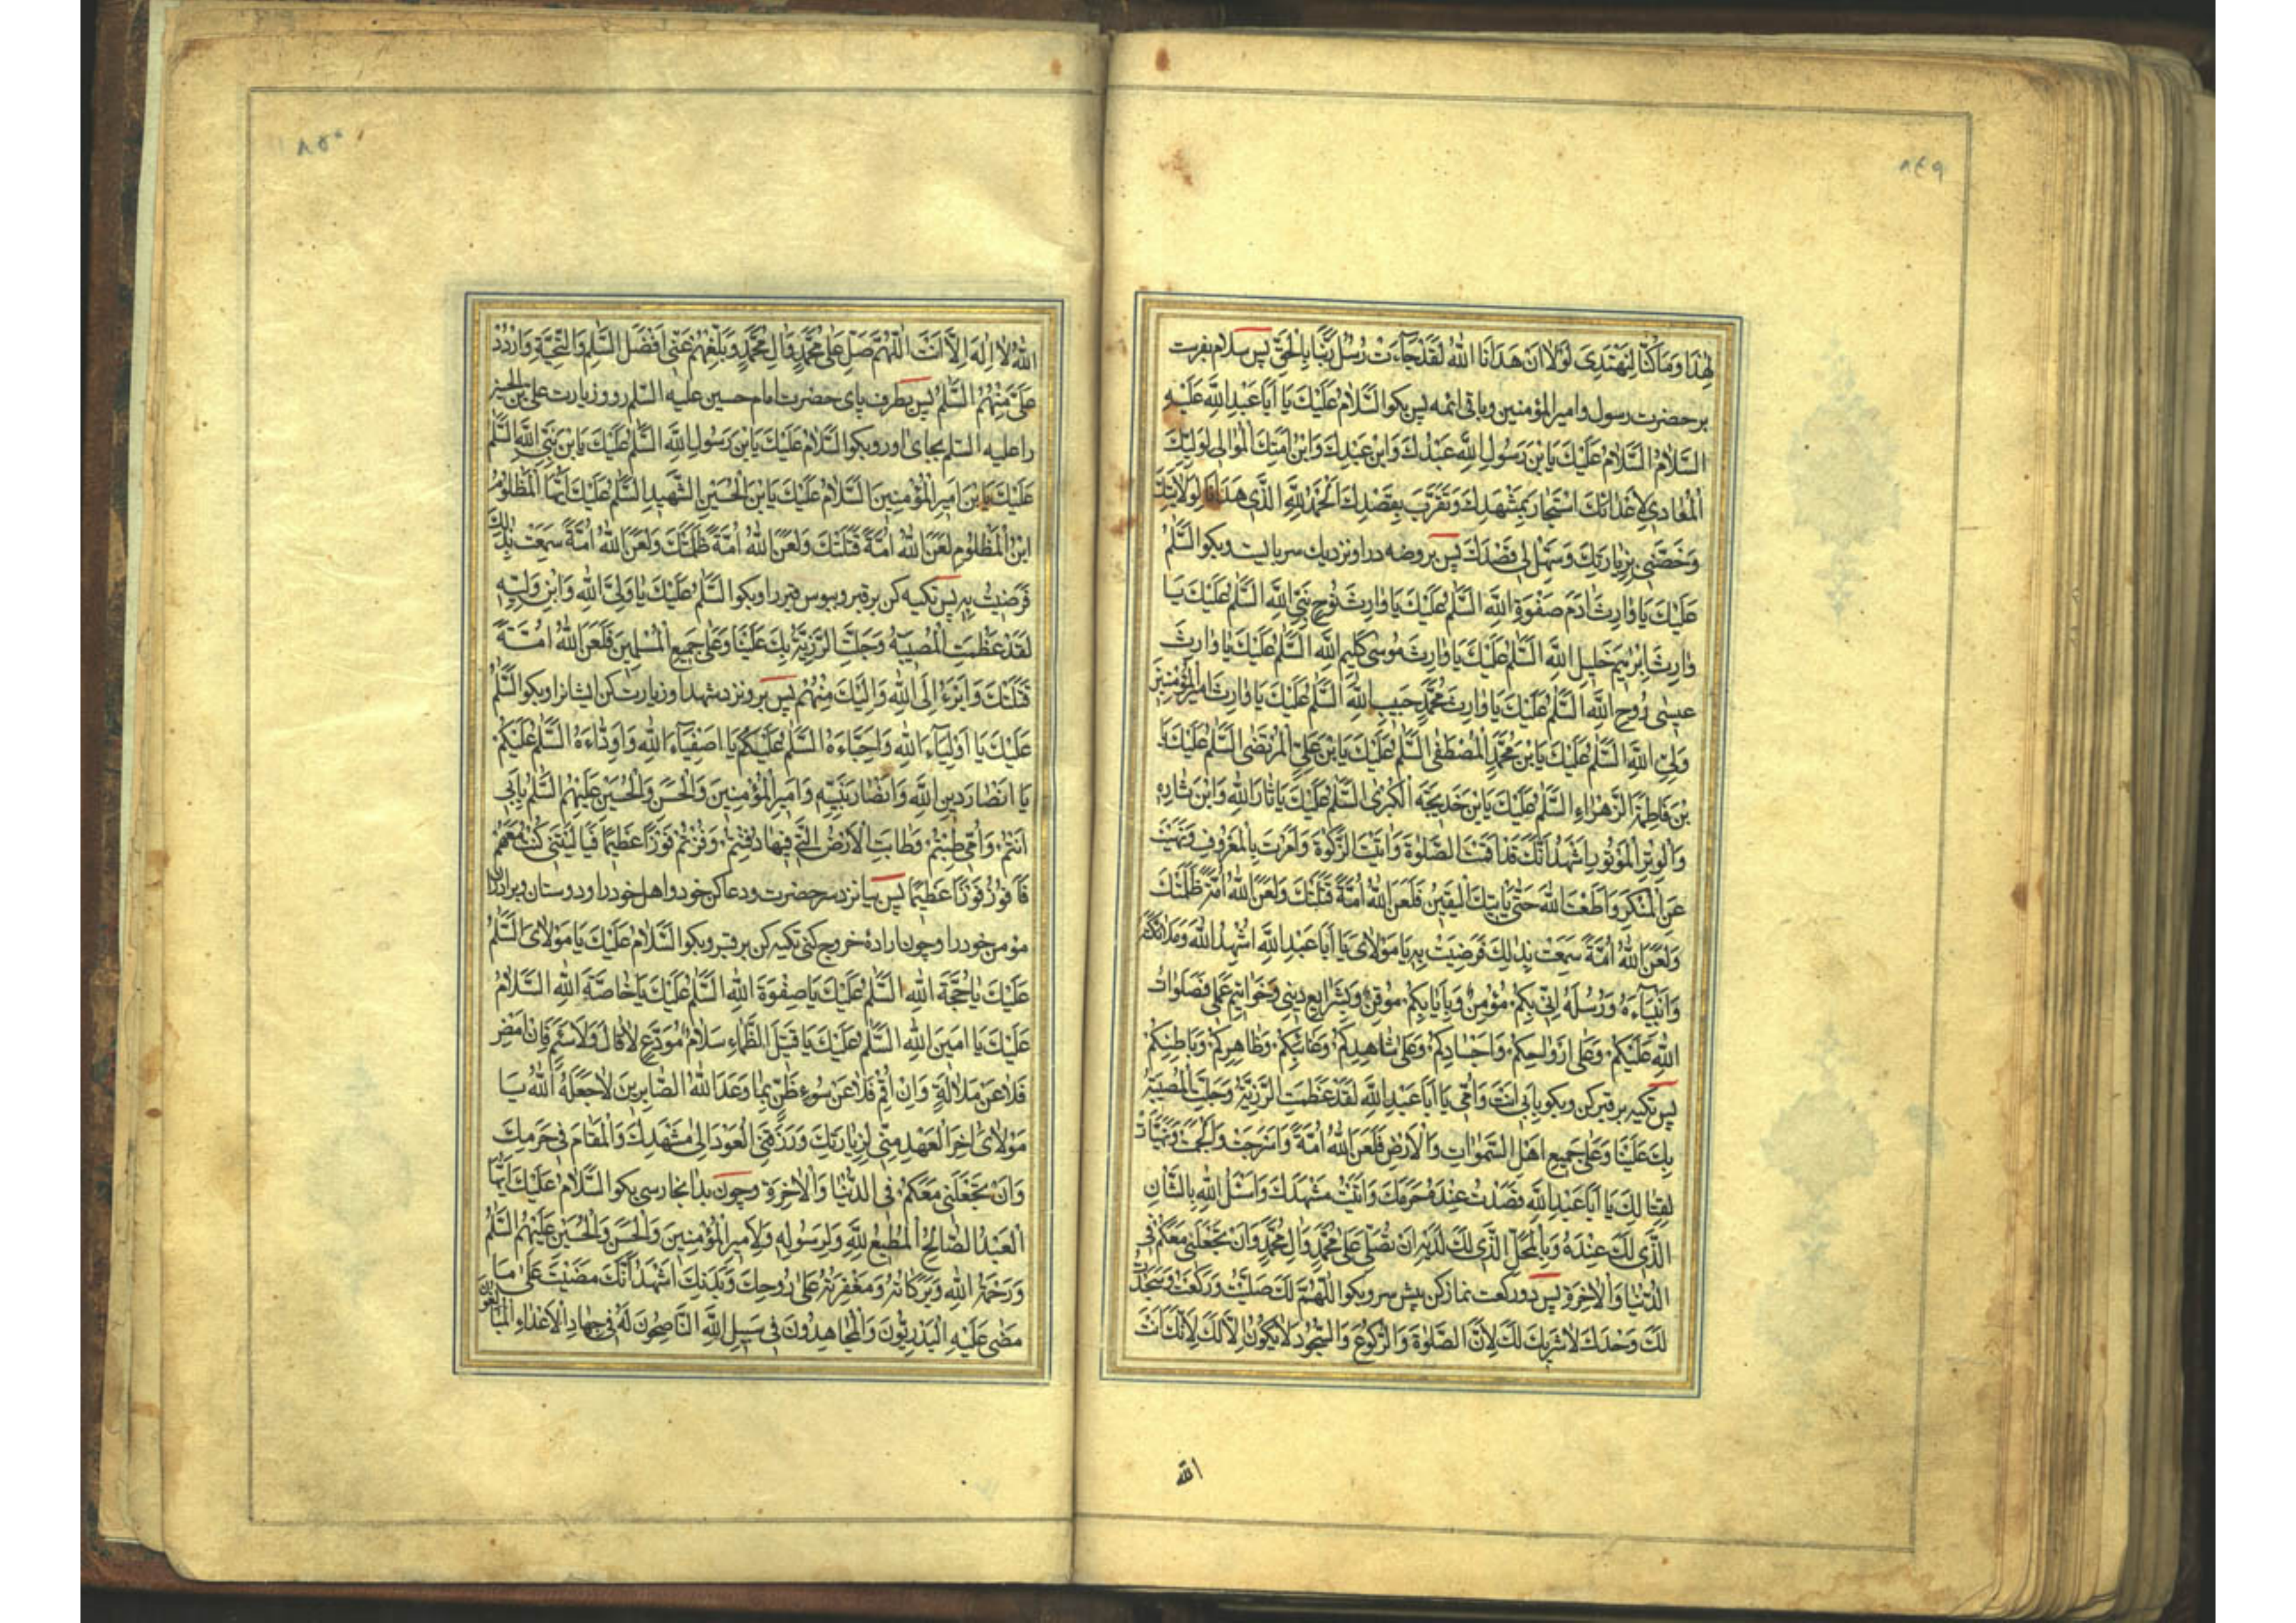 ٨٤٩
لِهٰذَا وَمَا كُنَّا لِنَهْتَدِىَ لَوْلَا اَنْ هَدَانَا اللهُ لَقَدْ جَآءَتْ رُسُلُ رَبِّنَا بِالْحَقِّ پس سلام بفرست
بر حضرت رسول و امیرالمؤمنین و باقی ائمه پس بکو اَلسَّلَامُ عَلَيْكَ يَا اَبَا عَبْدِ اللهِ عَلَيْهِ
السَّلَامُ السَّلَامُ عَلَيْكَ يَا بْنَ رَسُولِ اللهِ عَبْدُكَ وَابْنُ عَبْدِكَ وَابْنُ اَمَتِكَ الْمُوَالِى لِوَلِيِّكَ
الْمُعَادِى لِاَعْدَائِكَ اسْتَجَارَ بِمَشْهَدِكَ وَتَقَرَّبَ بِقَصْدِكَ اَلْحَمْدُ لِلّٰهِ الَّذِى هَدَانَا لِوِلَايَتِكَ
وَخَصَّنِى بِزِيَارَتِكَ وَسَهَّلَ لِى قَصْدَكَ پس بروضه درا و نزدیك سر بایست و بکو اَلسَّلٰمُ
عَلَيْكَ يَا وَارِثَ اٰدَمَ صَفْوَةِ اللهِ السَّلٰمُ عَلَيْكَ يَا وَارِثَ نُوحٍ نَبِىِّ اللهِ السَّلٰمُ عَلَيْكَ يَا
وَارِثَ اِبْرٰهِيمَ خَلِيلِ اللهِ السَّلٰمُ عَلَيْكَ يَا وَارِثَ مُوسٰى كَلِيمِ اللهِ السَّلٰمُ عَلَيْكَ يَا وَارِثَ
عِيسٰى رُوحِ اللهِ السَّلٰمُ عَلَيْكَ يَا وَارِثَ مُحَمَّدٍ حَبِيبِ اللهِ السَّلٰمُ عَلَيْكَ يَا وَارِثَ اَمِيرِ الْمُؤْمِنِينَ
وَلِىِّ اللهِ السَّلٰمُ عَلَيْكَ يَا بْنَ مُحَمَّدٍ الْمُصْطَفٰى السَّلٰمُ عَلَيْكَ يَا بْنَ عَلِىٍّ الْمُرْتَضٰى السَّلٰمُ عَلَيْكَ يَا
بْنَ فَاطِمَةَ الزَّهْرَاءِ السَّلٰمُ عَلَيْكَ يَا بْنَ خَدِيجَةَ الْكُبْرٰى السَّلٰمُ عَلَيْكَ يَا ثَارَ اللهِ وَابْنَ ثَارِهِ
وَالْوِتْرَ الْمَوْتُورَ اَشْهَدُ اَنَّكَ قَدْ اَقَمْتَ الصَّلٰوةَ وَاٰتَيْتَ الزَّكٰوةَ وَاَمَرْتَ بِالْمَعْرُوفِ وَنَهَيْتَ
عَنِ الْمُنْكَرِ وَاَطَعْتَ اللهَ حَتّٰى يَاْتِيَكَ الْيَقِينُ فَلَعَنَ اللهُ اُمَّةً قَتَلَتْكَ وَلَعَنَ اللهُ اُمَّةً ظَلَمَتْكَ
وَلَعَنَ اللهُ اُمَّةً سَمِعَتْ بِذٰلِكَ فَرَضِيَتْ بِهِ يَا مَوْلَاىَ يَا اَبَا عَبْدِ اللهِ اُشْهِدُ اللهَ وَمَلَائِكَتَهُ
وَاَنْبِيَآءَهُ وَرُسُلَهُ اَنِّى بِكُمْ مُؤْمِنٌ وَبِاِيَابِكُمْ مُوقِنٌ وَبِشَرَايِعِ دِينِى وَخَوَاتِيمِ عَمَلِى فَصَلَوَاتُ
اللهِ عَلَيْكُمْ وَعَلٰى اَرْوَاحِكُمْ وَاَجْسَادِكُمْ وَعَلٰى شَاهِدِكُمْ وَغَائِبِكُمْ وَظَاهِرِكُمْ وَبَاطِنِكُمْ
پس تکیه بر قبر کن و بکو بِاَبِى اَنْتَ وَاُمِّى يَا اَبَا عَبْدِ اللهِ لَقَدْ عَظُمَتِ الرَّزِيَّةُ وَجَلَّتِ الْمُصِيبَةُ
بِكَ عَلَيْنَا وَعَلٰى جَمِيعِ اَهْلِ السَّمٰوَاتِ وَالْاَرْضِ فَلَعَنَ اللهُ اُمَّةً وَاَسْرَجَتْ وَاَلْجَمَتْ وَتَهَيَّاَتْ
لِقِتَالِكَ يَا اَبَا عَبْدِ اللهِ قَصَدْتُ عِنْدَ مُحَرَّمِكَ وَاَتَيْتُ مَشْهَدَكَ وَاَسْئَلُ اللهَ بِالشَّانِ
الَّذِى لَكَ عِنْدَهُ وَبِالْمَحَلِّ الَّذِى لَكَ لَدَيْهِ اَنْ تُصَلِّىَ عَلٰى مُحَمَّدٍ وَاٰلِ مُحَمَّدٍ وَاَنْ تَجْعَلَنِى مَعَكُمْ فِى
الدُّنْيَا وَالْاٰخِرَةِ پس دو رکعت نماز کن پیش سر و بکو اَللّٰهُمَّ لَكَ صَلَّيْتُ وَرَكَعْتُ وَسَجَدْتُ
لَكَ وَحْدَكَ لَا شَرِيكَ لَكَ لِاَنَّ الصَّلٰوةَ وَالرُّكُوعَ وَالسُّجُودَ لَا يَكُونُ اِلَّا لَكَ لِاَنَّكَ اَنْتَ
الله
٨٥٠
اللهُ لَا اِلٰهَ اِلَّا اَنْتَ اَللّٰهُمَّ صَلِّ عَلٰى مُحَمَّدٍ وَاٰلِ مُحَمَّدٍ وَبَلِّغْهُمْ عَنِّى اَفْضَلَ السَّلٰمِ وَالتَّحِيَّةِ وَارْدُدْ
عَلَىَّ مِنْهُمُ السَّلٰمُ پس بطرف پای حضرت امام حسین علیه السلم رو و زیارت علی بن الحسین
را علیه السلم بجای اور و بکو اَلسَّلَامُ عَلَيْكَ يَا بْنَ رَسُولِ اللهِ السَّلٰمُ عَلَيْكَ يَا بْنَ نَبِىِّ اللهِ السَّلٰمُ
عَلَيْكَ يَا بْنَ اَمِيرِ الْمُؤْمِنِينَ السَّلَامُ عَلَيْكَ يَا بْنَ الْحُسَيْنِ الشَّهِيدِ السَّلٰمُ عَلَيْكَ اَيُّهَا الْمَظْلُومُ
ابْنُ الْمَظْلُومِ لَعَنَ اللهُ اُمَّةً قَتَلَتْكَ وَلَعَنَ اللهُ اُمَّةً ظَلَمَتْكَ وَلَعَنَ اللهُ اُمَّةً سَمِعَتْ بِذٰلِكَ
فَرَضِيَتْ بِهِ پس تکیه کن بر قبر و ببوس قبر را و بکو اَلسَّلٰمُ عَلَيْكَ يَا وَلِىَّ اللهِ وَابْنَ وَلِيِّهِ
لَقَدْ عَظُمَتِ الْمُصِيبَةُ وَجَلَّتِ الرَّزِيَّةُ بِكَ عَلَيْنَا وَعَلٰى جَمِيعِ الْمُسْلِمِينَ فَلَعَنَ اللهُ اُمَّةً
قَتَلَتْكَ وَاَبْرَءُ اِلَى اللهِ وَاِلَيْكَ مِنْهُمْ پس برو نزد شهدا و زیارت کن ایشانرا و بکو اَلسَّلٰمُ
عَلَيْكَ يَا اَوْلِيَآءَ اللهِ وَاَحِبَّاءَهُ السَّلٰمُ عَلَيْكُمْ يَا اَصْفِيَآءَ اللهِ وَاَوِدَّاءَهُ السَّلٰمُ عَلَيْكُمْ
يَا اَنْصَارَ دِينِ اللهِ وَاَنْصَارَ نَبِيِّهِ وَاَمِيرِ الْمُؤْمِنِينَ وَالْحَسَنِ وَالْحُسَيْنِ عَلَيْهِمُ السَّلٰمُ بِاَبِى
اَنْتُمْ وَاُمِّى طِبْتُمْ وَطَابَتِ الْاَرْضُ الَّتِى فِيهَا دُفِنْتُمْ وَفُزْتُمْ فَوْزًا عَظِيمًا فَيَا لَيْتَنِى كُنْتُ مَعَكُمْ
فَاَفُوزَ فَوْزًا عَظِيمًا پس بیا نزد سر حضرت و دعا کن خود و اهل خود را و دوستان و برادران
مؤمن خود را و چون اراده خروج کنی تکیه کن بر قبر و بکو اَلسَّلَامُ عَلَيْكَ يَا مَوْلَاىَ السَّلٰمُ
عَلَيْكَ يَا حُجَّةَ اللهِ السَّلٰمُ عَلَيْكَ يَا صِفْوَةَ اللهِ السَّلٰمُ عَلَيْكَ يَا خَاصَّةَ اللهِ السَّلَامُ
عَلَيْكَ يَا اَمِينَ اللهِ السَّلٰمُ عَلَيْكَ يَا قَتِيلَ الظَّمَاءِ سَلَامُ مُوَدِّعٍ لَا قَالٍ وَلَا سَئِمٍ فَاِنْ اَمْضِ
فَلَا عَنْ مَلَالَةٍ وَاِنْ اُقِمْ فَلَا عَنْ سُوءِ ظَنٍّ بِمَا وَعَدَ اللهُ الصَّابِرِينَ لَا جَعَلَهُ اللهُ يَا
مَوْلَاىَ اٰخِرَ الْعَهْدِ مِنِّى لِزِيَارَتِكَ وَرَزَقَنِى الْعَوْدَ اِلٰى مَشْهَدِكَ وَالْمَقَامَ فِى حَرَمِكَ
وَاَنْ تَجْعَلَنِى مَعَكُمْ فِى الدُّنْيَا وَالْاٰخِرَةِ و چون بدانجا رسی بکو اَلسَّلَامُ عَلَيْكَ اَيُّهَا
الْعَبْدُ الصَّالِحُ الْمُطِيعُ لِلّٰهِ وَلِرَسُولِهِ وَلِاَمِيرِ الْمُؤْمِنِينَ وَالْحَسَنِ وَالْحُسَيْنِ عَلَيْهِمُ السَّلٰمُ
وَرَحْمَةُ اللهِ وَبَرَكَاتُهُ وَمَغْفِرَتُهُ عَلٰى رُوحِكَ وَبَدَنِكَ اَشْهَدُ اَنَّكَ مَضَيْتَ عَلٰى مَا
مَضٰى عَلَيْهِ الْبَدْرِيُّونَ وَالْمُجَاهِدُونَ فِى سَبِيلِ اللهِ النَّاصِحُونَ لَهُ فِى جِهَادِ الْاَعْدَاءِ الْمُبَالِغُونَ